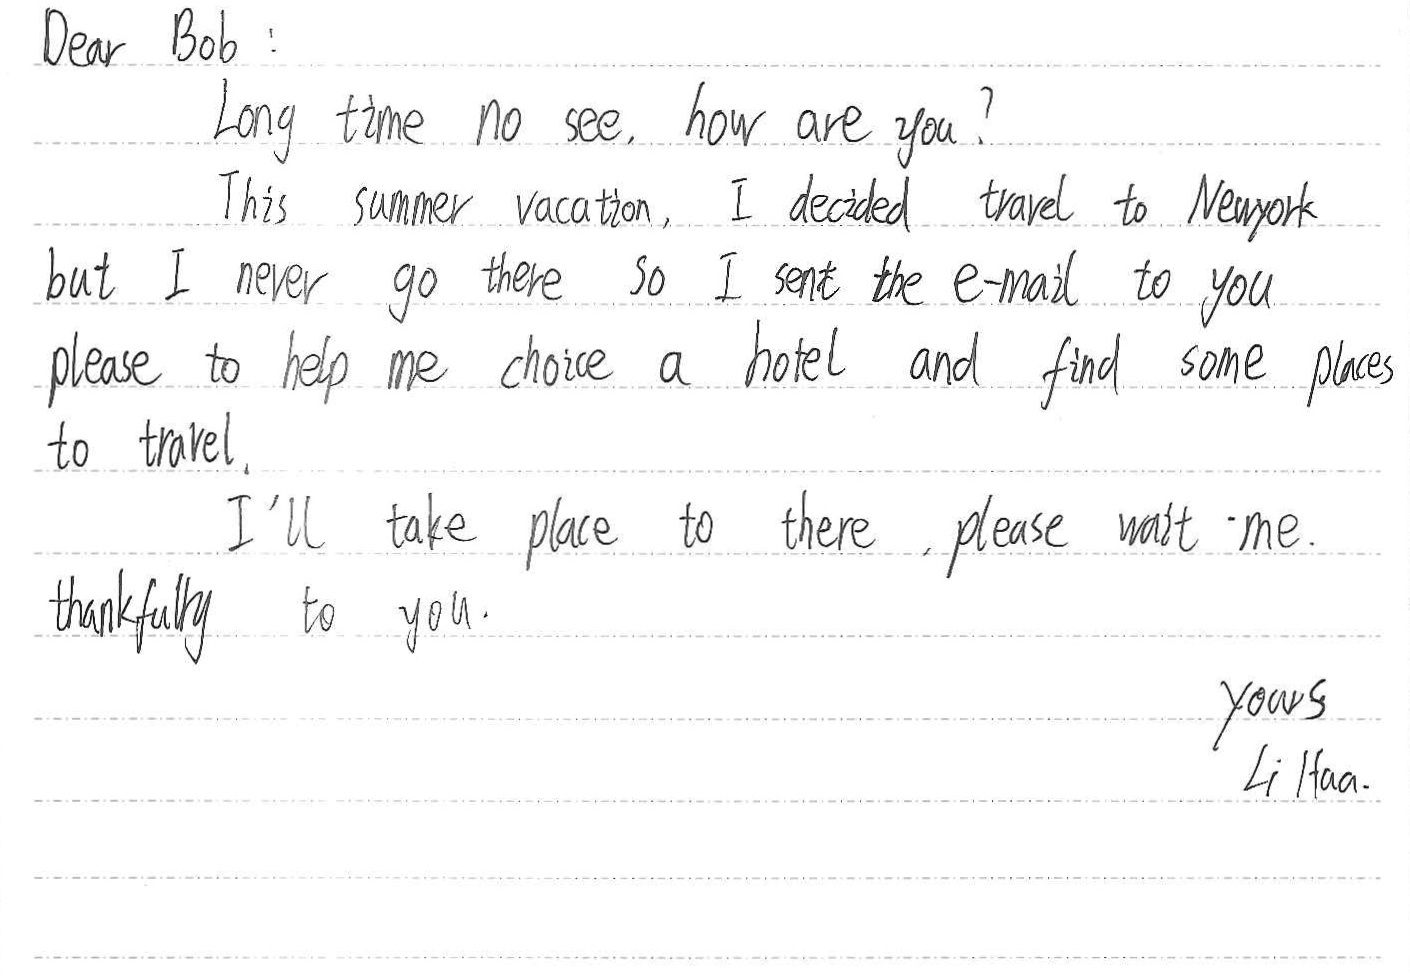 Dear Bob:
Long time no see, how are you?
This summer vacation, I decided travel to Newyork
but I never go there so I sent the e-mail to you
please to help me choice a hotel and find some places
to travel.
I'll take place to there, please wait me.
thankfully to you.
yours
Li Haa.